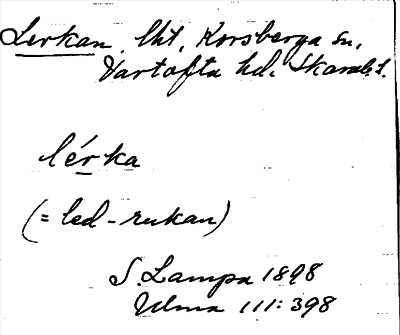 Lerkan, lht, Korsberga sn,
Vartofta hd. Skarab. l.
lérka
(= led-rukan)
S. Lampa 1898
Ulma 111:398